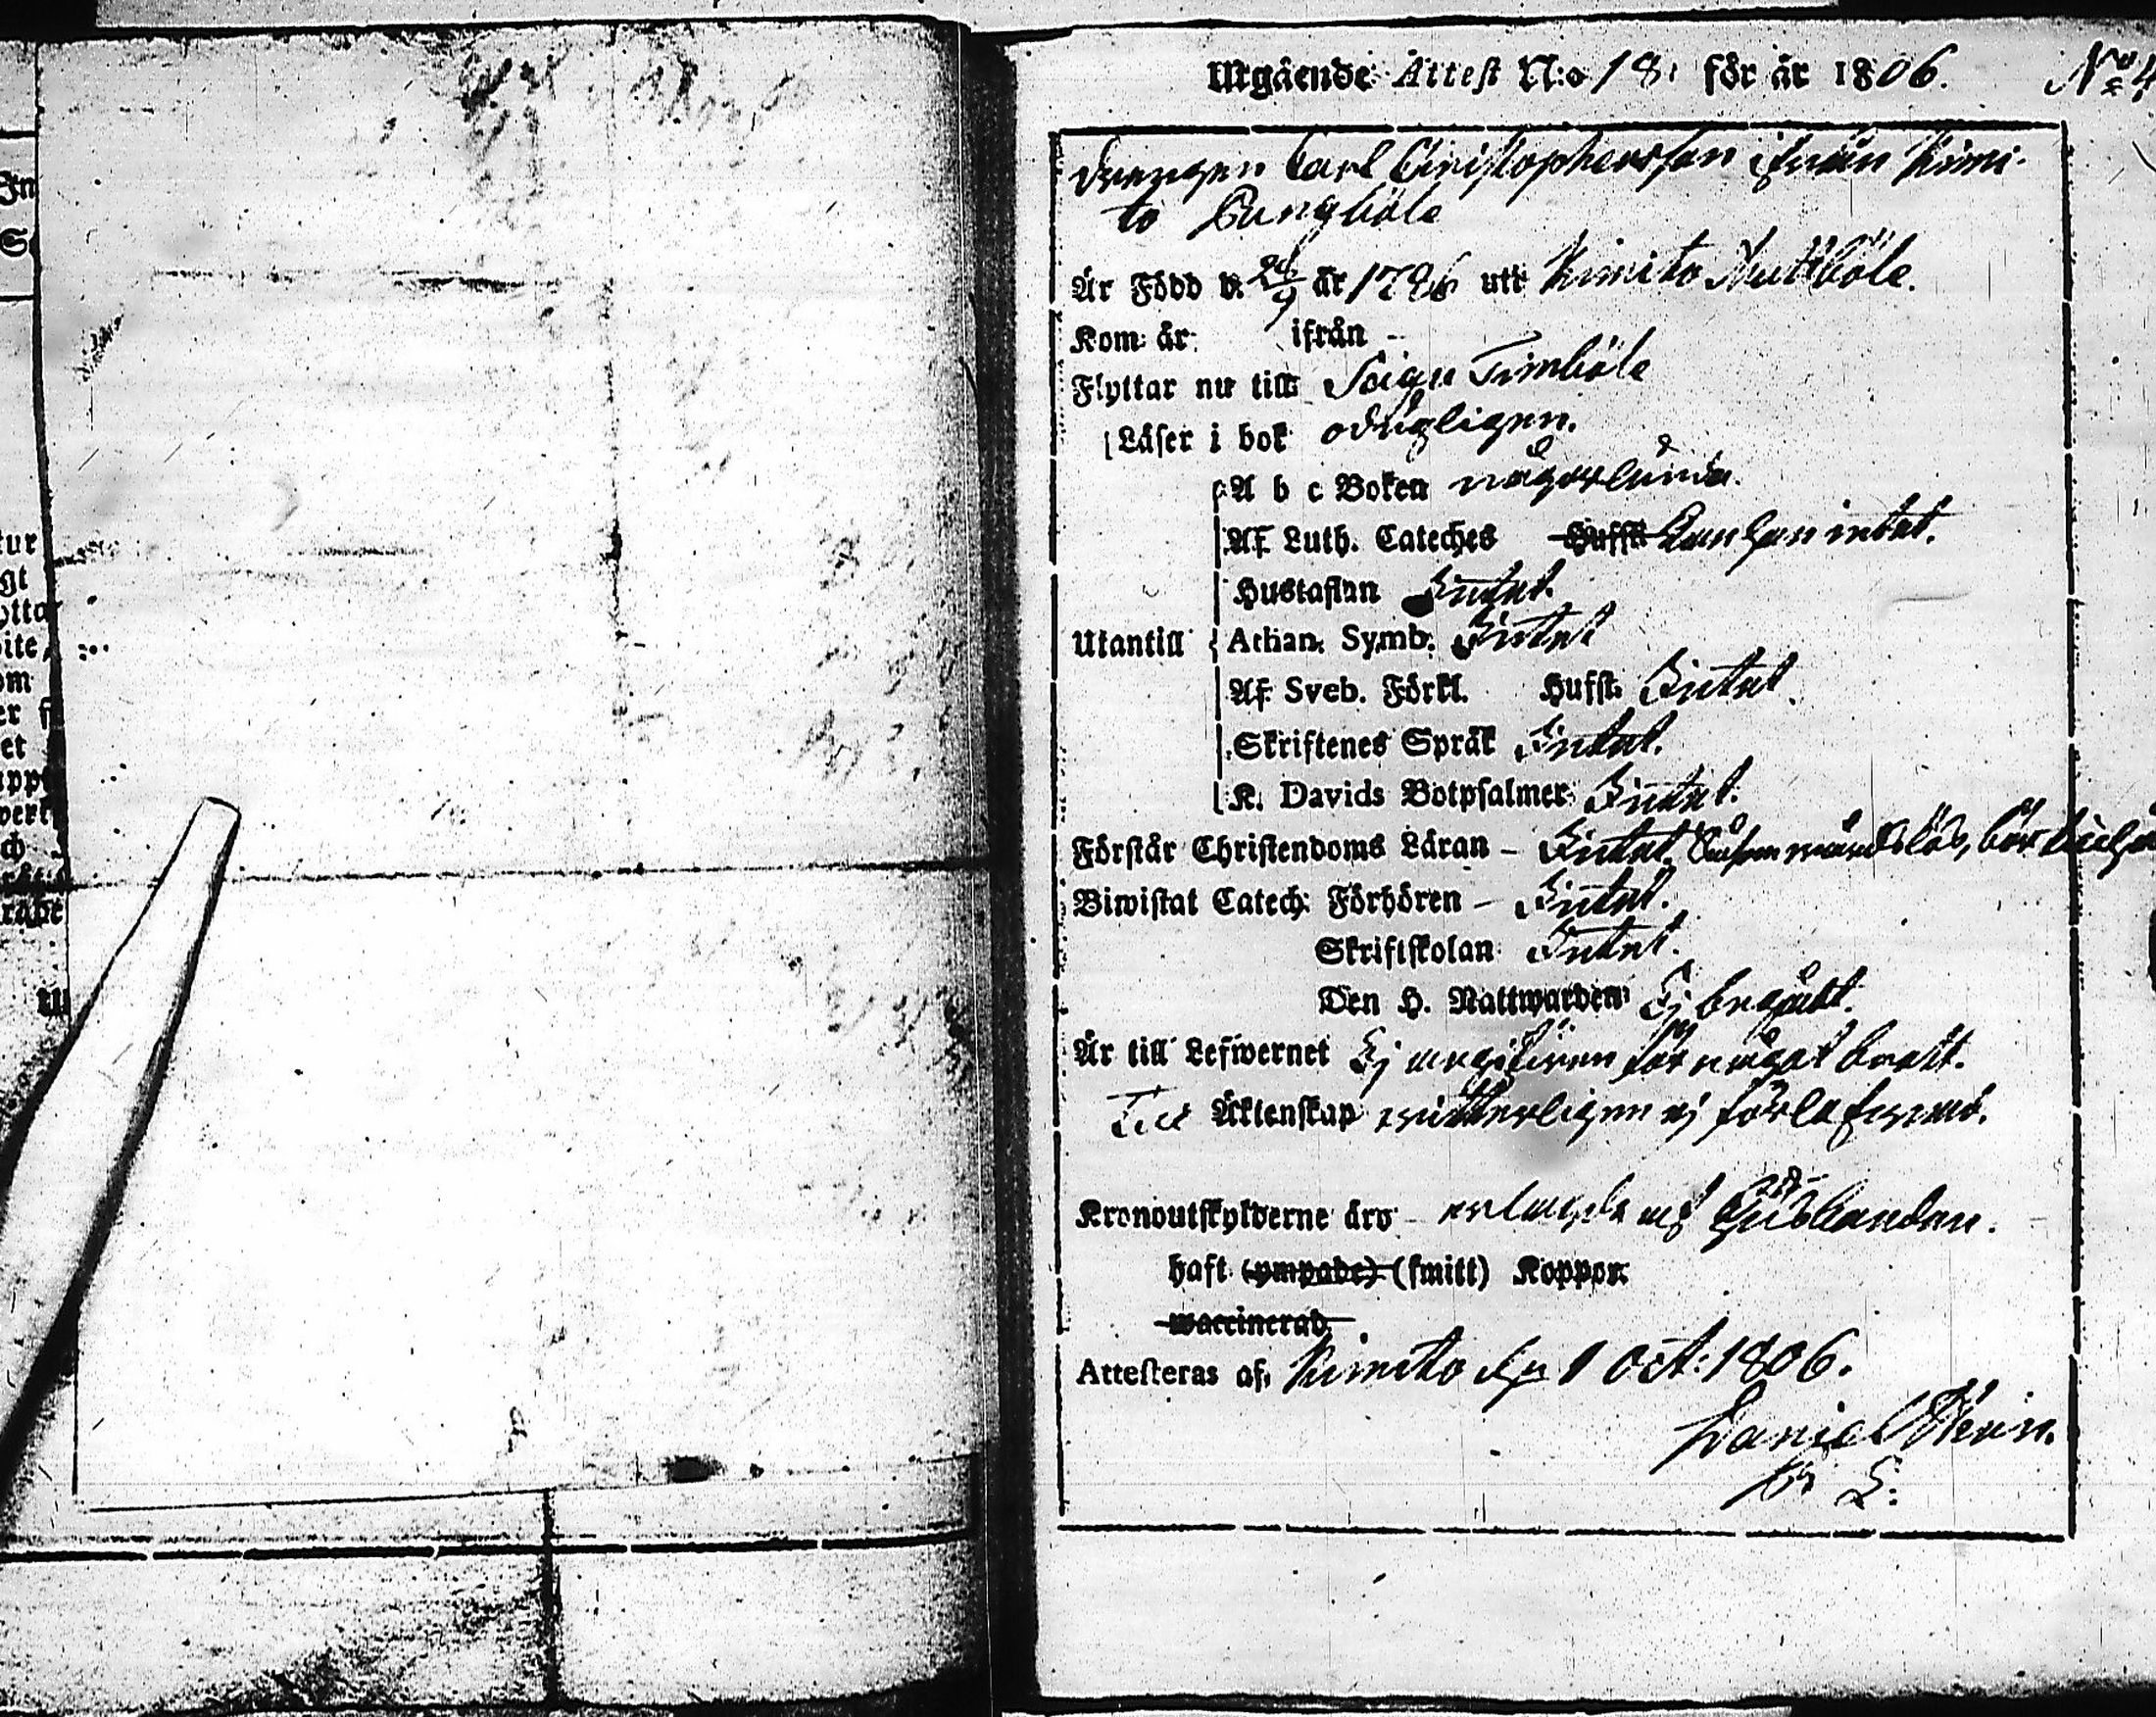 Utgående Attest N:o 18. för år 1806.
N:o 4
Drengen Carl Christophersson ifrån Kimi-
to Pungböle
Är Född d. 26/9 år 1786 uti Kimito Nuttböle.
Kom år ifrån -
Flyttar nu till Sagu Timböle
Läser i bok odugligen.
A b c Boken någorlunda.
Af Luth. Cateches Hufst. Kan han intet.
Hustaflan Intet.
Utantill Athan. Symb. Intet
Af Sveb. Förkl. Hufst. Intet.
Skriftenes Språk Intet.
K. Davids Botpsalmer Intet.
Förstår Christendoms Läran - Intet. Såsom wårdslös, bör
Biwistat Catech. Förhören - Intet.
Skriftskolan Intet.
Den H. Nattwarden Ej begått.
Är till Lefwernet Ej angifwen för något brott.
Till Äktenskap witterligen ej förlofwad.
Kronoutskylderne äro - erlagde af Husbonden.
haft (ympade) (smitt) Koppor.
waccinerad
Attesteras af. Kimito d. 1 Oct: 1806.
Daniel